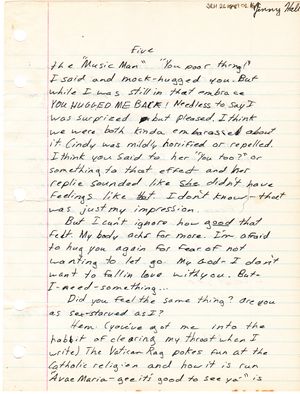 Jenny Hale
Five
the "Music Man" "You poor thing!"
I said and mock-hugged you. But
while I was still in that embrace
YOU HUGGED ME BACK! Needless to say I
was surprized but pleased. I think
we were both kinda embarassed about
it. Cindy was mildly horrified or repelled.
I think you said to her "You too?" or
something to that effect and her
replie sounded like she didn't have
feelings like that. I don't know - that
was just my impression.
But I can't ignore how good that
felt. My body achs for more. I'm afraid
to hug you again for fear of not
wanting to let go. My God - I don't
want to fall in love with you. But-
I-need-something...
Did you feel the same thing? Are you
as sex-starved as I?
Hem. (you've got me into the
habbit of clearing my throat when I
write) The Vatican Rag pokes fun at the
Catholic religion and how it is run
"Avae Maria-gee it's good to see ya" is